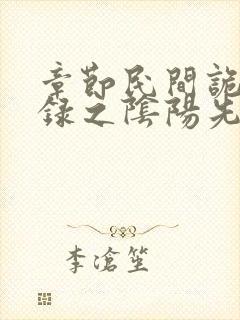 章節民間詭
錄之陰陽先
李滄笙